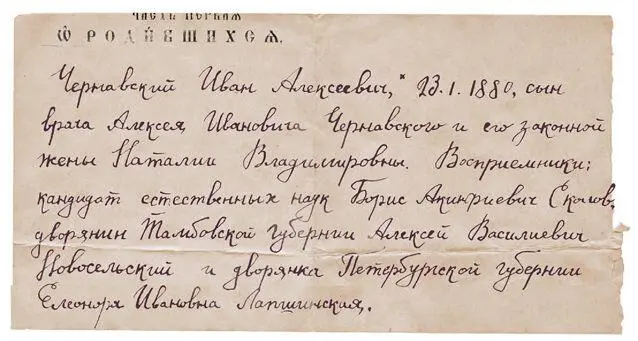 ЧАСТЬ ПЕРВАЯ
Ѿ РОДИВШИХСЯ.
Чернавский Иван Алексеевич,* 23.1.1880, сын
врача Алексея Ивановича Чернавского и его законной
жены Наталии Владимировны. Восприемники:
кандидат естественных наук Борис Акинфиевич
дворянин Тамбовской губернии Алексей Василиевич
Новосельский и дворянка Петербургской губернии
Елеонора Ивановна Лапшинская.